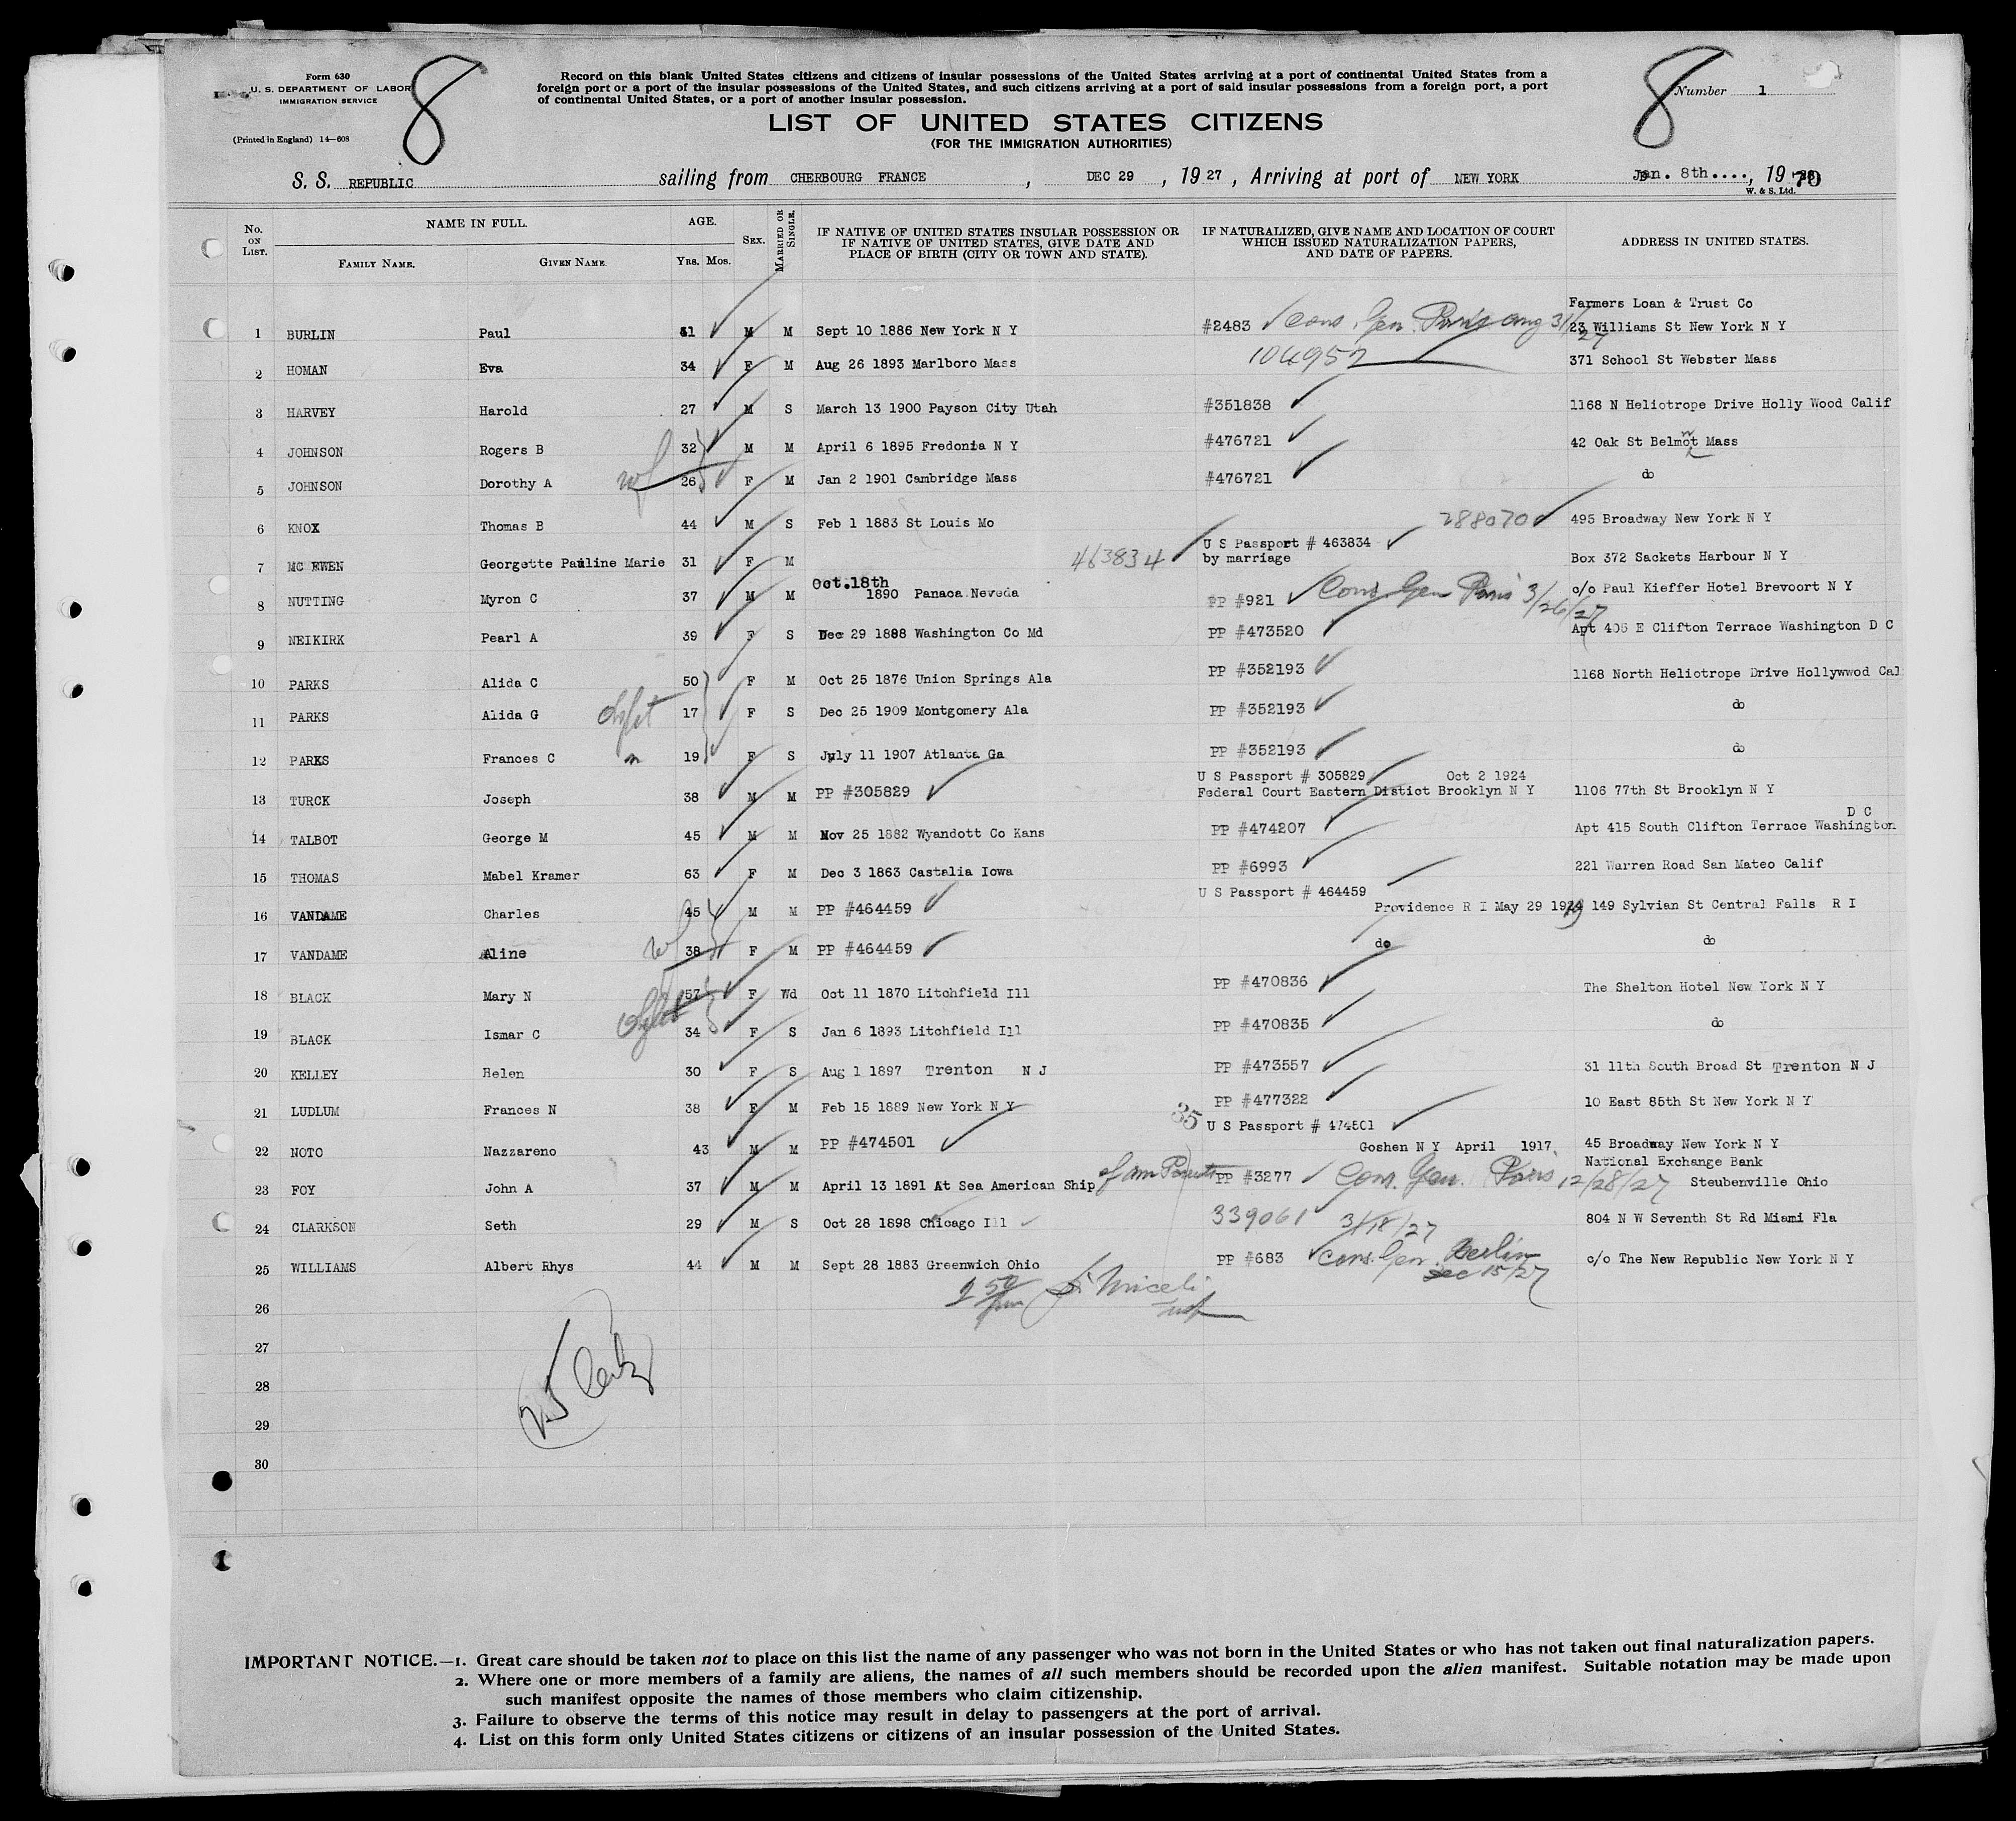 Form 630
U. S. DEPARTMENT OF LABOR
IMMIGRATION SERVICE
(Printed in England) 14—608
8
Record on this blank United States citizens and citizens of insular possessions of the United States arriving at a port of continental United States from a
foreign port or a port of the insular possessions of the United States, and such citizens arriving at a port of said insular possessions from a foreign port, a port
of continental United States, or a port of another insular possession.
8
Number 1
LIST OF UNITED STATES CITIZENS
(FOR THE IMMIGRATION AUTHORITIES)
S. S. REPUBLIC sailing from CHERBOURG FRANCE, DEC 29, 1927, Arriving at port of NEW YORK Jan. 8th...., 19
70
W. & S. Ltd.
No. ON LIST. NAME IN FULL. FAMILY NAME. GIVEN NAME. AGE. YRS. MOS. SEX. MARRIED OR SINGLE. IF NATIVE OF UNITED STATES INSULAR POSSESSION OR IF NATIVE OF UNITED STATES, GIVE DATE AND PLACE OF BIRTH (CITY OR TOWN AND STATE). IF NATURALIZED, GIVE NAME AND LOCATION OF COURT WHICH ISSUED NATURALIZATION PAPERS, AND DATE OF PAPERS. ADDRESS IN UNITED STATES.
Farmers Loan & Trust Co
1 BURLIN Paul 41 M M Sept 10 1886 New York N Y #2483 Cons. Gen. Paris Aug 31/27 23 Williams St New York N Y
2 HOMAN Eva 34 F M Aug 26 1893 Marlboro Mass 104952 371 School St Webster Mass
3 HARVEY Harold 27 M S March 13 1900 Payson City Utah #351838 1168 N Heliotrope Drive Holly Wood Calif
4 JOHNSON Rogers B 32 M M April 6 1895 Fredonia N Y #476721 42 Oak St Belmont Mass
5 JOHNSON Dorothy A wf 26 F M Jan 2 1901 Cambridge Mass #476721 do
6 KNOX Thomas B 44 M S Feb 1 1883 St Louis Mo 288070 495 Broadway New York N Y
U S Passport # 463834
7 MC EWEN Georgette Pauline Marie 31 F M 463834 by marriage Box 372 Sackets Harbour N Y
Oct.18th
8 NUTTING Myron C 37 M M 1890 Panaca Neveda PP #921 Cons. Gen Paris 3/26/27 c/o Paul Kieffer Hotel Brevoort N Y
9 NEIKIRK Pearl A 39 F S Dec 29 1888 Washington Co Md PP #473520 Apt 405 E Clifton Terrace Washington D C
10 PARKS Alida C 50 F M Oct 25 1876 Union Springs Ala PP #352193 1168 North Heliotrope Drive Hollywwod Cal
11 PARKS Alida G 17 F S Dec 25 1909 Montgomery Ala PP #352193 do
12 PARKS Frances C " 19 F S July 11 1907 Atlanta Ga PP #352193 do
U S Passport # 305829 Oct 2 1924
13 TURCK Joseph 38 M M PP #305829 Federal Court Eastern Distict Brooklyn N Y 1106 77th St Brooklyn N Y
D C
14 TALBOT George M 45 M M Nov 25 1882 Wyandott Co Kans PP #474207 Apt 415 South Clifton Terrace Washington
15 THOMAS Mabel Kramer 63 F M Dec 3 1863 Castalia Iowa PP #6993 221 Warren Road San Mateo Calif
U S Passport # 464459
16 VANDAME Charles 45 M M PP #464459 Providence R I May 29 149 Sylvian St Central Falls R I
17 VANDAME Aline wf 38 F M PP #464459 do do
18 BLACK Mary N 57 F Wd Oct 11 1870 Litchfield Ill PP #470836 The Shelton Hotel New York N Y
19 BLACK Ismar C 34 F S Jan 6 1893 Litchfield Ill PP #470835 do
20 KELLEY Helen 30 F S Aug 1 1897 Trenton N J PP #473557 31 11th South Broad St Trenton N J
21 LUDLUM Frances N 38 F M Feb 15 1889 New York N Y PP #477322 10 East 85th St New York N Y
35 U S Passport # 474501
22 NOTO Nazzareno 43 M M PP #474501 Goshen N Y April 1917. 45 Broadway New York N Y
National Exchange Bank
23 FOY John A 37 M M April 13 1891 At Sea American Ship of Am Parents PP #3277 Cons. Gen. Paris 12/28/27 Steubenville Ohio
24 CLARKSON Seth 29 M S Oct 28 1898 Chicago Ill 339061 3/18/27 804 N W Seventh St Rd Miami Fla
25 WILLIAMS Albert Rhys 44 M M Sept 28 1883 Greenwich Ohio PP #683 Cons. Gen. Berlin Dec 15/27 c/o The New Republic New York N Y
26
27
28
29
30
IMPORTANT NOTICE.—1. Great care should be taken not to place on this list the name of any passenger who was not born in the United States or who has not taken out final naturalization papers.
2. Where one or more members of a family are aliens, the names of all such members should be recorded upon the alien manifest. Suitable notation may be made upon
such manifest opposite the names of those members who claim citizenship.
3. Failure to observe the terms of this notice may result in delay to passengers at the port of arrival.
4. List on this form only United States citizens or citizens of an insular possession of the United States.